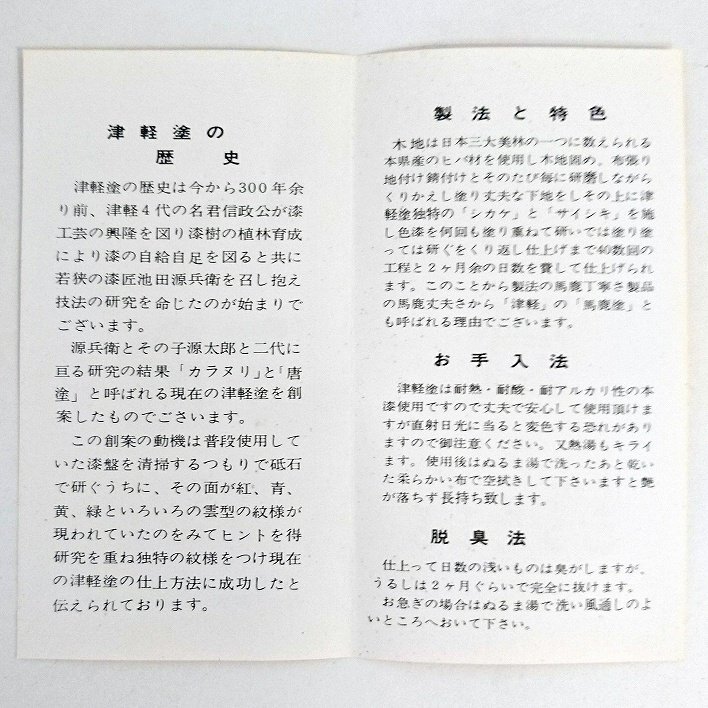 津軽塗の
歴史
津軽塗の歴史は今から300年余
り前、津軽4代の名君信政公が漆
工芸の興隆を図り漆樹の植林育成
により漆の自給自足を図ると共に
若狭の漆匠池田源兵衛を召し抱え
技法の研究を命じたのが始まりで
ございます。
源兵衛とその子源太郎と二代に
亘る研究の結果「カラヌリ」と「唐
塗」と呼ばれる現在の津軽塗を創
案したものでごさいます。
この創案の動機は普段使用して
いた漆盤を清掃するつもりで砥石
で研ぐうちに、その面が紅、青、
黄、緑といろいろの雲型の紋様が
現われていたのをみてヒントを得
研究を重ね独特の紋様をつけ現在
の津軽塗の仕上方法に成功したと
伝えられております。
製法と特色
木地は日本三大美林の一つに数えられる
本県産のヒバ材を使用し木地固め。布張り
地付け錆付けとそのたび毎に研磨しながら
くりかえし塗り丈夫な下地をしその上に津
軽塗独特の「シカケ」と「サイシキ」を施
し色漆を何回も塗り重ねて研いでは塗り塗
っては研ぐをくり返し仕上げまで40数回の
工程と2ヶ月余の日数を費して仕上げられ
ます。このことから製法の馬鹿丁寧さ製品
の馬鹿丈夫さから「津軽」の「馬鹿塗」と
も呼ばれる理由でございます。
お手入法
津軽塗は耐熱・耐酸・耐アルカリ性の本
漆使用ですので丈夫で安心して使用頂けま
すが直射日光に当ると変色する恐れがあり
ますので御注意ください。又熱湯もキライ
ます。使用後はぬるま湯で洗ったあと乾い
た柔らかい布で空拭きして下さいますと艶
が落ちず長持ち致します。
脱臭法
仕上って日数の浅いものは臭がしますが、
うるしは2ヶ月ぐらいで完全に抜けます。
お急ぎの場合はぬるま湯で洗い風通しのよ
いところへおいて下さい。